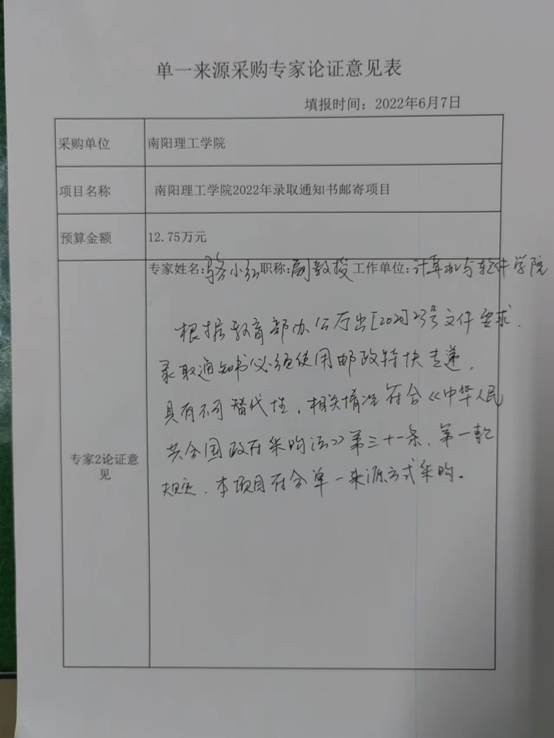 单一来源采购专家论证意见表
填报时间：2022年6月7日
采购单位 南阳理工学院
项目名称 南阳理工学院2022年录取通知书邮寄项目
预算金额 12.75万元
专家姓名:骆小红职称:副教授工作单位:计算机与软件学院
根据教育部办公厅出[202]23号文件要求
录取通知书必须使用邮政特快专递，
具有不可替代性，相关情况符合《中华人民
共合国政府采购法》第三十一条，第一款
规定，本项目符合单一来源方式采购。
专家2论证意
见